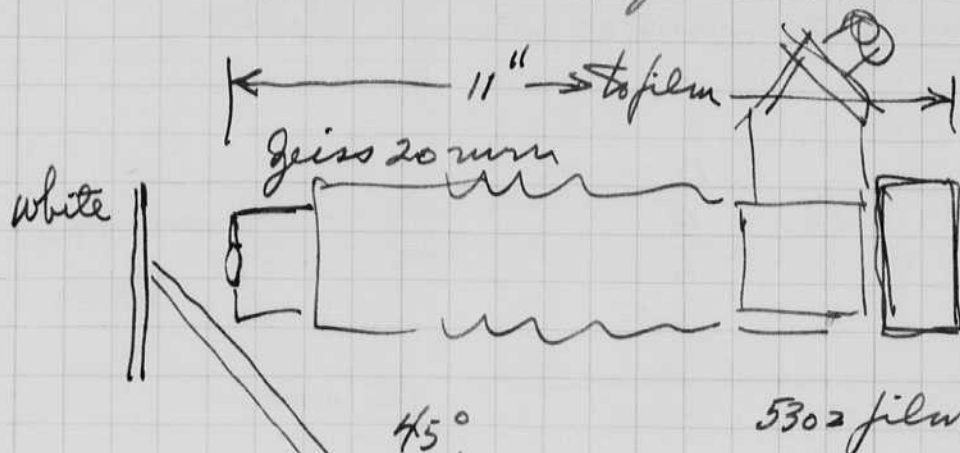 11" to film
Zeiss 20 mm
white
45°
5302 film